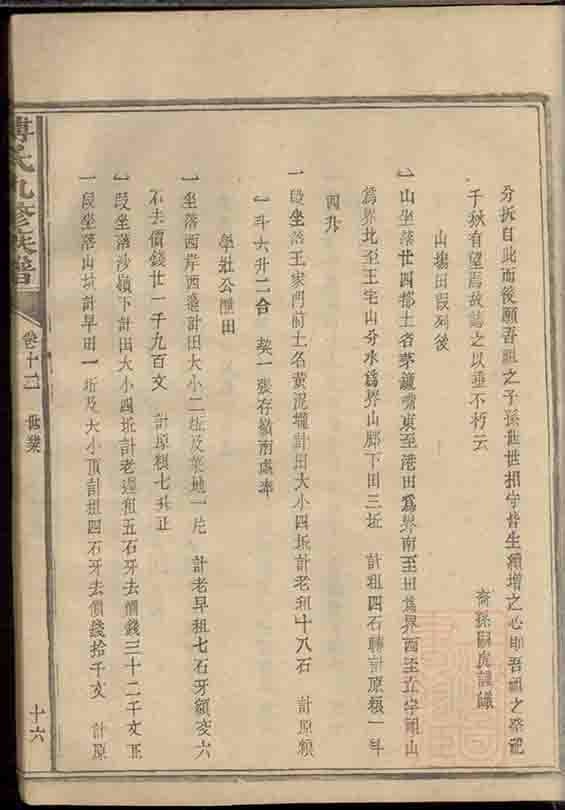 分拆自此而後願吾祖之子孫世世相守皆生續增之心即吾祖之祭祀
千秋有望焉故誌之以垂不朽云
裔孫嗣虞謹識
山塲田叚列後
一山坐落廿四都土名茅嘴東至港田爲界南至田爲界西至立字詞山
爲界北至王宅山分水爲界山脚下田三坵 計租四石轉計原粮一斗
四升
一段坐落王家門前土名黃泥壠計田大小四坵計老租十八石 計原粮
一斗六升二合 契一張存嶺南處率
學壯公醮田
一坐落西岸西邉計田大小二坵及菜地一片 計老早租七石牙額变六
石去價錢廿一千九百文 計原粮七升正
一段坐落沙嶺下計田大小四坵計老遲租五石牙去價錢三十二千文正
一段坐落山坑計早田一坵及大小頂計租四石牙去價錢拾千文 計原
傅氏九修族譜
卷十二 世業
十六